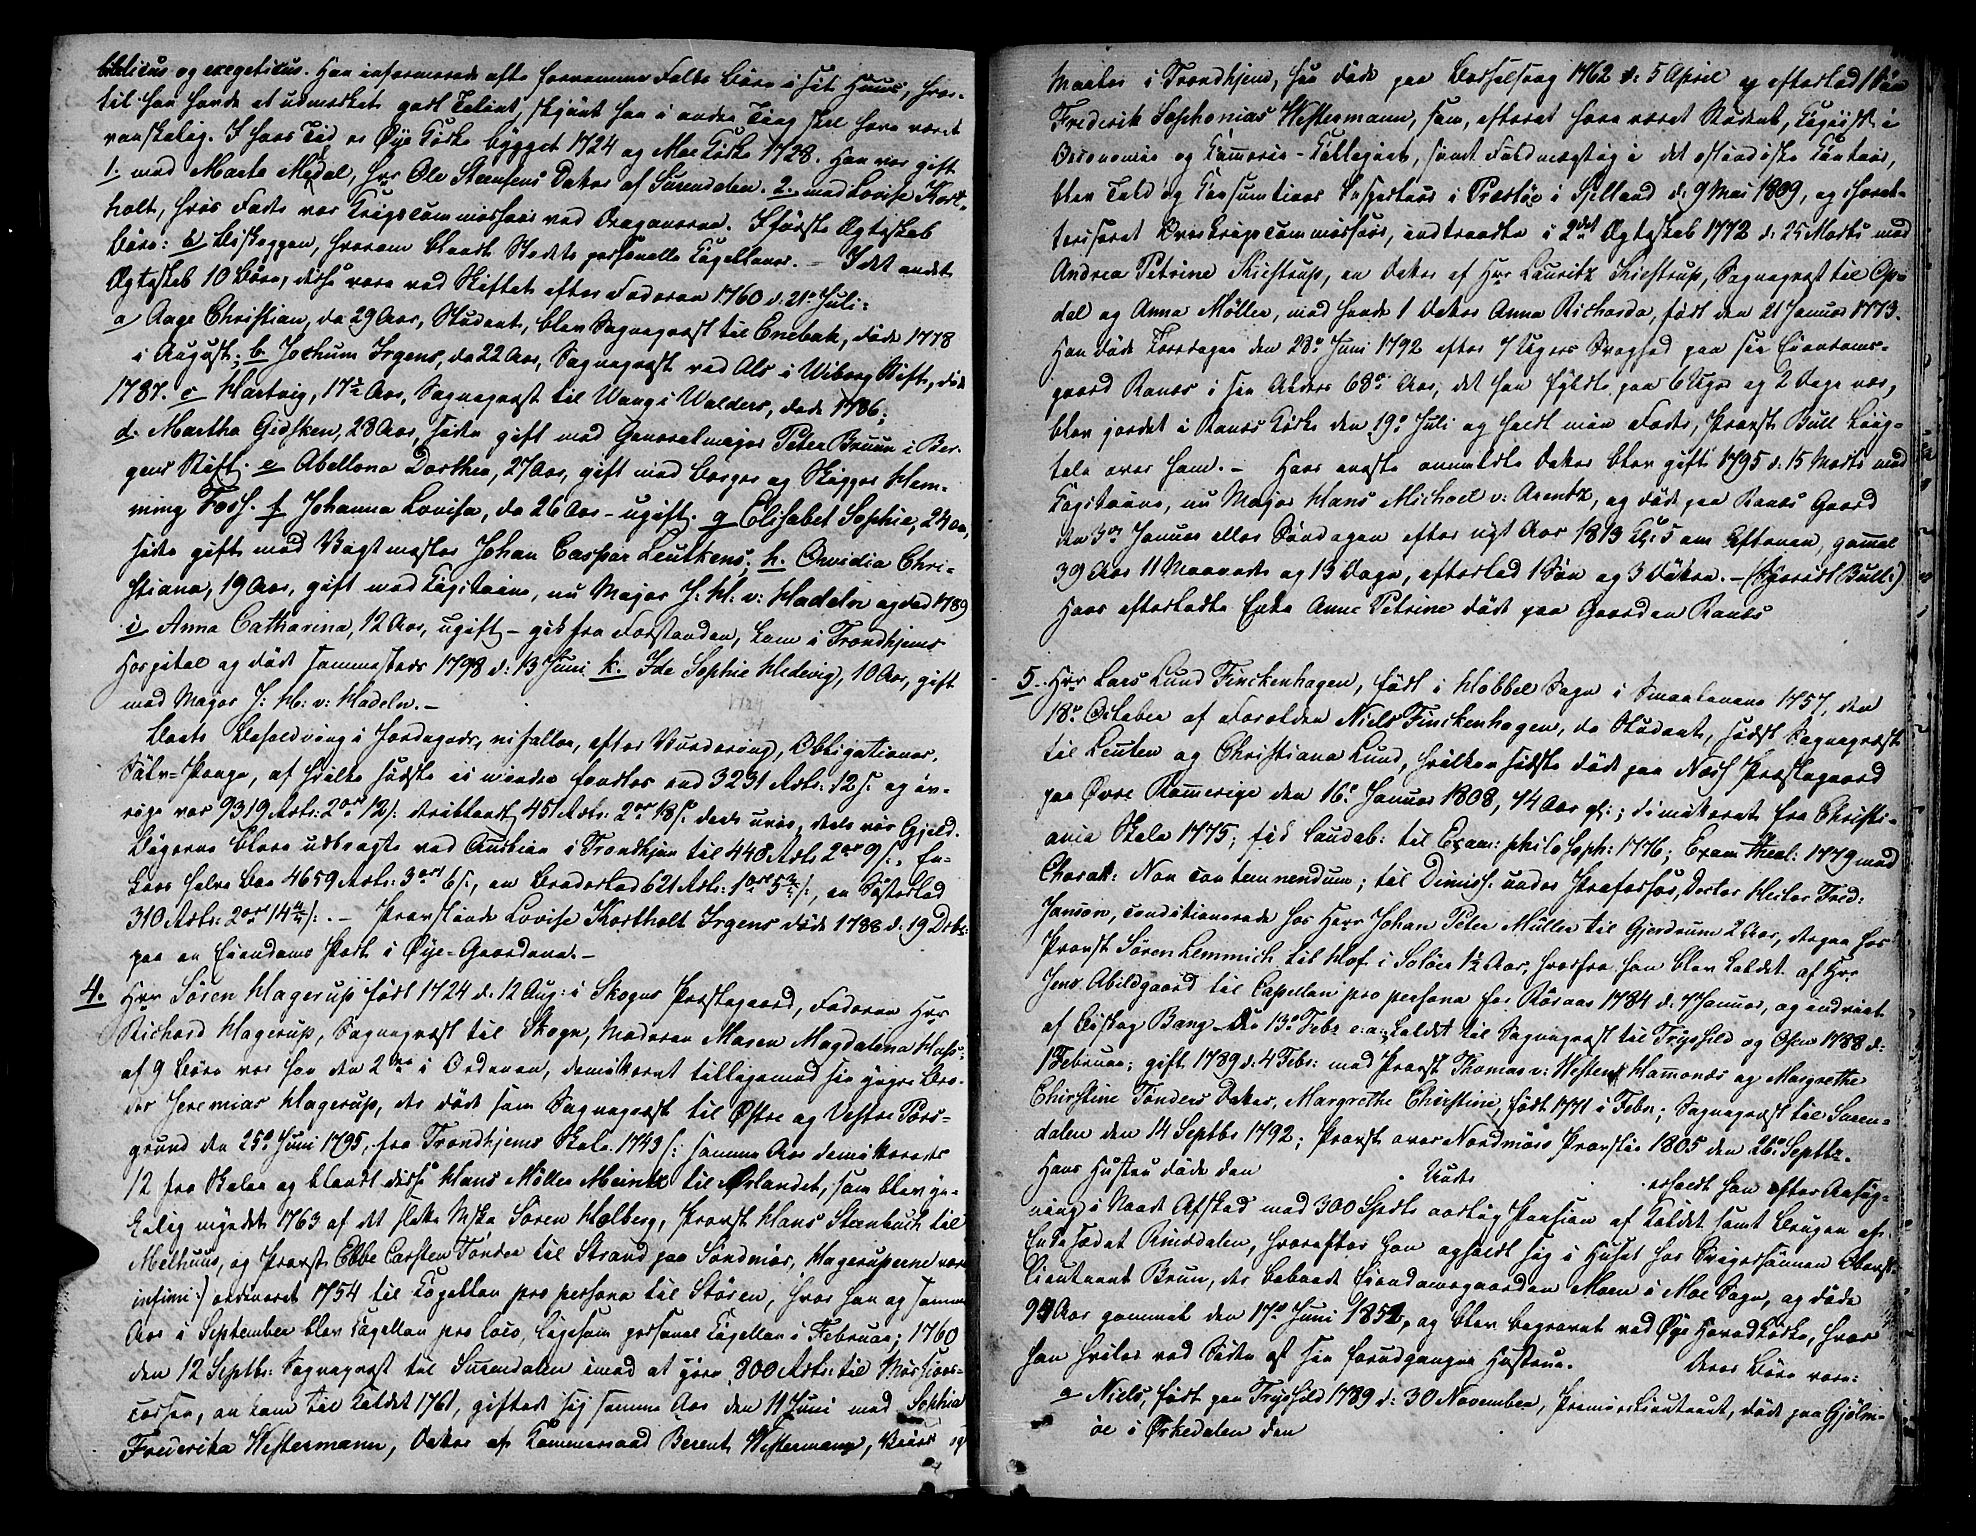 biblicus og exegeticus. Han informerede ofte fornemme Folks Børn i sit Huus, hvor-
til han havde et udmærket godt Talent, skjønt han i andre Ting skal have været
vanskelig. I hans Tid er Øye Kirke bygget 1724 og Moe Kirke 1728. Han var gift
1. med Marte Medal, Hr Ole Steensens Datter af Surendalen. 2. med Lovise Kort-
holt, hvis Fader var Krigscommissair ved Dragonerne. I første Ægteskab
Børn: a Biskoppen, hvorom blandt Stedets personelle Capellaner. – I det andet
Ægteskab 10 Børn, disse vare ved Skiftet efter Faderen 1760 d: 21de Juli:
a Aage Christian, da 29 Aar, Student, blev Sognepræst til Enebak, døde 1778
i August; b. Jochum Irgens, da 22 Aar, Sognepræst ved Als i Wiborg Stift, døde
1787. c Hartvig, 17½ Aar, Sognepræst til Wang i Walders, døde 1786;
d. Martha Gidsken, 28 Aar, siden gift med Generalmajor Peter Bruun i Ber-
gens Stift. e Abellona Dorthea, 27 Aar, gift med Borger og Skipper Hem-
ming Foss. f Johanna Lovisa, da 26 Aar – ugift. g Elisabet Sophia, 24 Aar,
siden gift med Vagtmester Johan Caspar Leutkens; h. Ovidia Chri-
stiana, 19 Aar, gift med Capitaine, nu Major J: H: v: Hadeln og død 1789
i Anna Catharina, 12 Aar, ugift – gik fra Forstanden, kom i Trondhjems
Hospital og døde sammesteds 1798 d: 13 Juni k. Ide Sophie Hedevig, 10 Aar, gift
med Major J: H: v: Hadeln. –
Boets Beholdning i Jordegods, efter Vurdering, Obligationer,
Sølv-Penge, af hvilke sidste ei mindre fandtes end 3231 Rdlr: 12 s. og øv-
rige var 9319 Rdlr: 2 ort 12 s: 451 Rdlr: 2 ort 18 s. deels uvis, deels vis Gjeld.
Bøgerne bleve udbragte ved Auction i Trondhjem til 448 Rdlr 2 ort 9 s:, En-
kens halve Boe 4659 Rdlr: 3 ort 6 s:, en Broderlod 621 Rdlr: 1 ort 5 s:, en Søsterlod
310 Rdlr: 2 ort 14 s: . – Provstinde Lovise Kortholt Irgens døde 1788 d: 19 Decbr:
paa en Eiendoms Part i Øye-Gaardene. –
4. Hr Søren Hagerup født 1724 d: 12 Aug: i Skogns Præstegaard, Faderen Hr
Richard Hagerup, Sognepræst til Skogn, Moderen Maren Magdalena Hass:
af 9 Børn var han den 2den i Ordenen, demitteret tilligemed sin yngre Bro-
der Jeremias Hagerup, der døde som Sognepræst til Østre og Vestre Pors-
grund den 25de Juni 1795, fra Trondhjems Skole 1743 (: samme Aar demitteredes
12 fra Skolen og blandt disse Hans Møller Meintz til Ørlandet, som blev yn-
kelig myrdet 1763 af det slette Mske Søren Holberg, Provst Hans Steenbuch til
Melhuus, og Provst Ebbe Carsten Tønder til Strand paa Søndmør, Hagerupperne vare
infimi :) ordineret 1754 til Capellan pro persona til Støren, hvor han og samme
Aar i September blev Capellan pro loco, ligesom personel Capellan i Februar; 1760
den 12 Septbr: Sognepræst til Surendalen imod at give 800 Rdlr: til Missions-
cassen, ankom til Kaldet 1761, giftede sig samme Aar den 11 Juni med Sophia
Frederika Westermann, Datter af Kammerraad Berent Westermann, og
Maeles i Trondhjem, hun døde paa 1762 d: 5 April og efterlod 1 Søn
Frederik Sophonias Westermann, som, efterat have været Student, Copiist i
Oeconomie og Commerce-Collegiet, samt Fuldmægtig i det ostindiske Contoir,
blev Told og Consumtions Inspecteur i Præstøe i Sjelland d: 9 Mai 1809, og charac-
teriseret Overkrigscommissair, indtraadte i 2det Ægteskab 1772 d: 25 Marts med
Andrea Petrine Kiestrup, en Datter af Hr Lauritz Kiestrup, Sognepræst til Op-
dal og Anna Møller, med hende 1 Datter Anna Richarda, født den 21 Januar 1773.
Han døde Torsdagen den 28de Juni 1792 efter 7 Ugers Svaghed paa sin Eiendoms-
gaard Ranes i sin Alders 68de Aar, det han fyldte paa 6 Uger og 2 Dage nær,
blev jordet i Ranes Kirke den 19de Juli og holdt min Fader, Provst Bull Liig-
tale over ham. – Hans eneste anmeldte Datter blev gift 1795 d: 15 Marts med
Capitaine, nu Major Hans Michael v: Arentz, og døde paa Ranes Gaard
den 3die Januar eller Søndagen efter nyt Aar 1813 Kl: 5 om Aftenen, gammel
39 Aar 11 Maaneder og 13 Dage, efterlod 1 Søn og 3 Døttre. – (Sjovidt Bull:)
Hans efterladte Enke Anne Petrine døde paa Gaarden Ranes
5. Hr Lars Lund Finckenhagen, født i Hobbel Sogn i Smaalenene 1757, den
18de October af Forældre Niels Finckenhagen, da Student, sidst Sognepræst
til Leuten og Christiana Lund, hvilken sidste døde paa Næss Præstegaard
paa Øvre Romerige den 16de Januar 1808, 74 Aar gl:; dimitteret fra Christi-
ania Skole 1775; fik laudab: til Exam: philosoph: 1776; Exam Theol: 1779 med
Charakt: Non contemnendum; til Dimiss: under Professor, Doctor Hector Fred:
Janson, conditionerede hos Herr Johan Peter Müller til Gjerdrum 2 Aar, derpaa hos
Provst Søren Lemmich til Hof i Soløer 1½ Aar, hvorfra han blev kaldet af Hr
Jens Abildgaard til Capellan pro persona for Røraas 1784 d. 7 Januar, og ordineret
af Biskop Bang den 13de Febr e: a: kaldet til Sognepræst til Trysild og Osen 1788 d:
1 Februar; gift 1789 d: 4 Febr: med Provst Thomas v: Westen Hammonds og Margrethe
Christine Tønders Datter, Margrethe Christine, født 1771 i Febr:; Sognepræst til Suren-
dalen den 14 Septbr 1792; Provst over Nordmørs Provstie 1805 den 26de Septbr.
Hans Hustru døde den Auder erholdt han efter Ansøg-
ning i Naade Afsked med 300 Spdlr aarlig Pension af Kaldet samt Brugen af
Enkesædet Rinddalen, hvorefter han opholdt sig i Huset hos Svigersønnen Oberst-
lieutenant Brun, der beboede Eiendomsgaarden Moen i Moe Sogn, og døde
94 Aar gammel den 17de Juni 1852, og blev begravet ved Øye Hovedkirke, hvor
han hviler ved Siden af sin forudgangne Hustrue. Deres Børn vare:
a Niels, født paa Trysild 1789 d: 30 November, Premierlieutenant, døde paa Gjølm-
øe i Ørkedalen den